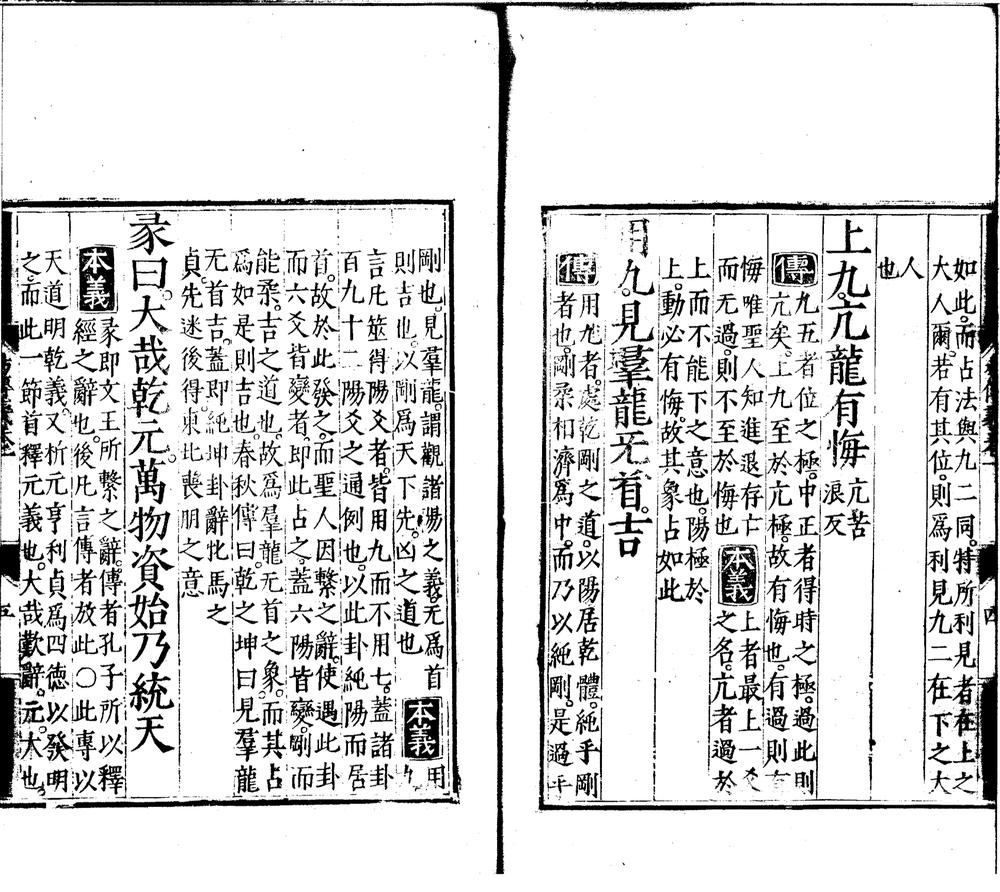 如此。而占法與九二同。特所利見者在上之
大人爾。若有其位。則爲利見九二在下之大
人
也
上九。亢龍有悔
亢苦
浪反
傳
九五者位之極。中正者得時之極。過此則
亢矣。上九至於亢極。故有悔也。有過則有
悔唯聖人知進退存亡
而无過。則不至於悔也
本義
上者最上一爻
之名。亢者過於
上而不能下之意也。陽極於
上。動必有悔。故其象占如此
用九。見羣龍无首。吉
傳
用九者。處乾剛之道。以陽居乾體。純乎剛
者也。剛柔相濟爲中。而乃以純剛。是過乎
剛也。見羣龍。謂觀諸陽之義。无爲首
則吉也。以剛爲天下先。凶之道也
本義
用
九
言凡筮得陽爻者。皆用九而不用七。蓋諸卦
百九十二陽爻之通例也。以此卦純陽而居
首。故於此發之。而聖人因繫之辭。使遇此卦
而六爻皆變者。即此占之。蓋六陽皆變。剛而
能柔。吉之道也。故爲羣龍无首之象。而其占
爲如是則吉也。春秋傳曰。乾之坤曰。見羣龍
无首吉。蓋即純坤卦辭牝馬之
貞。先迷後得。東北喪朋之意
彖曰。大哉乾元。萬物資始。乃統天
本義
彖即文王所繫之辭。傳者孔子所以釋
經之辭也。後凡言傳者放此○此專以
天道明乾義。又析元亨利貞爲四德以發明
之。而此一節首釋元義也。大哉歎辭。元。大也。
四
五